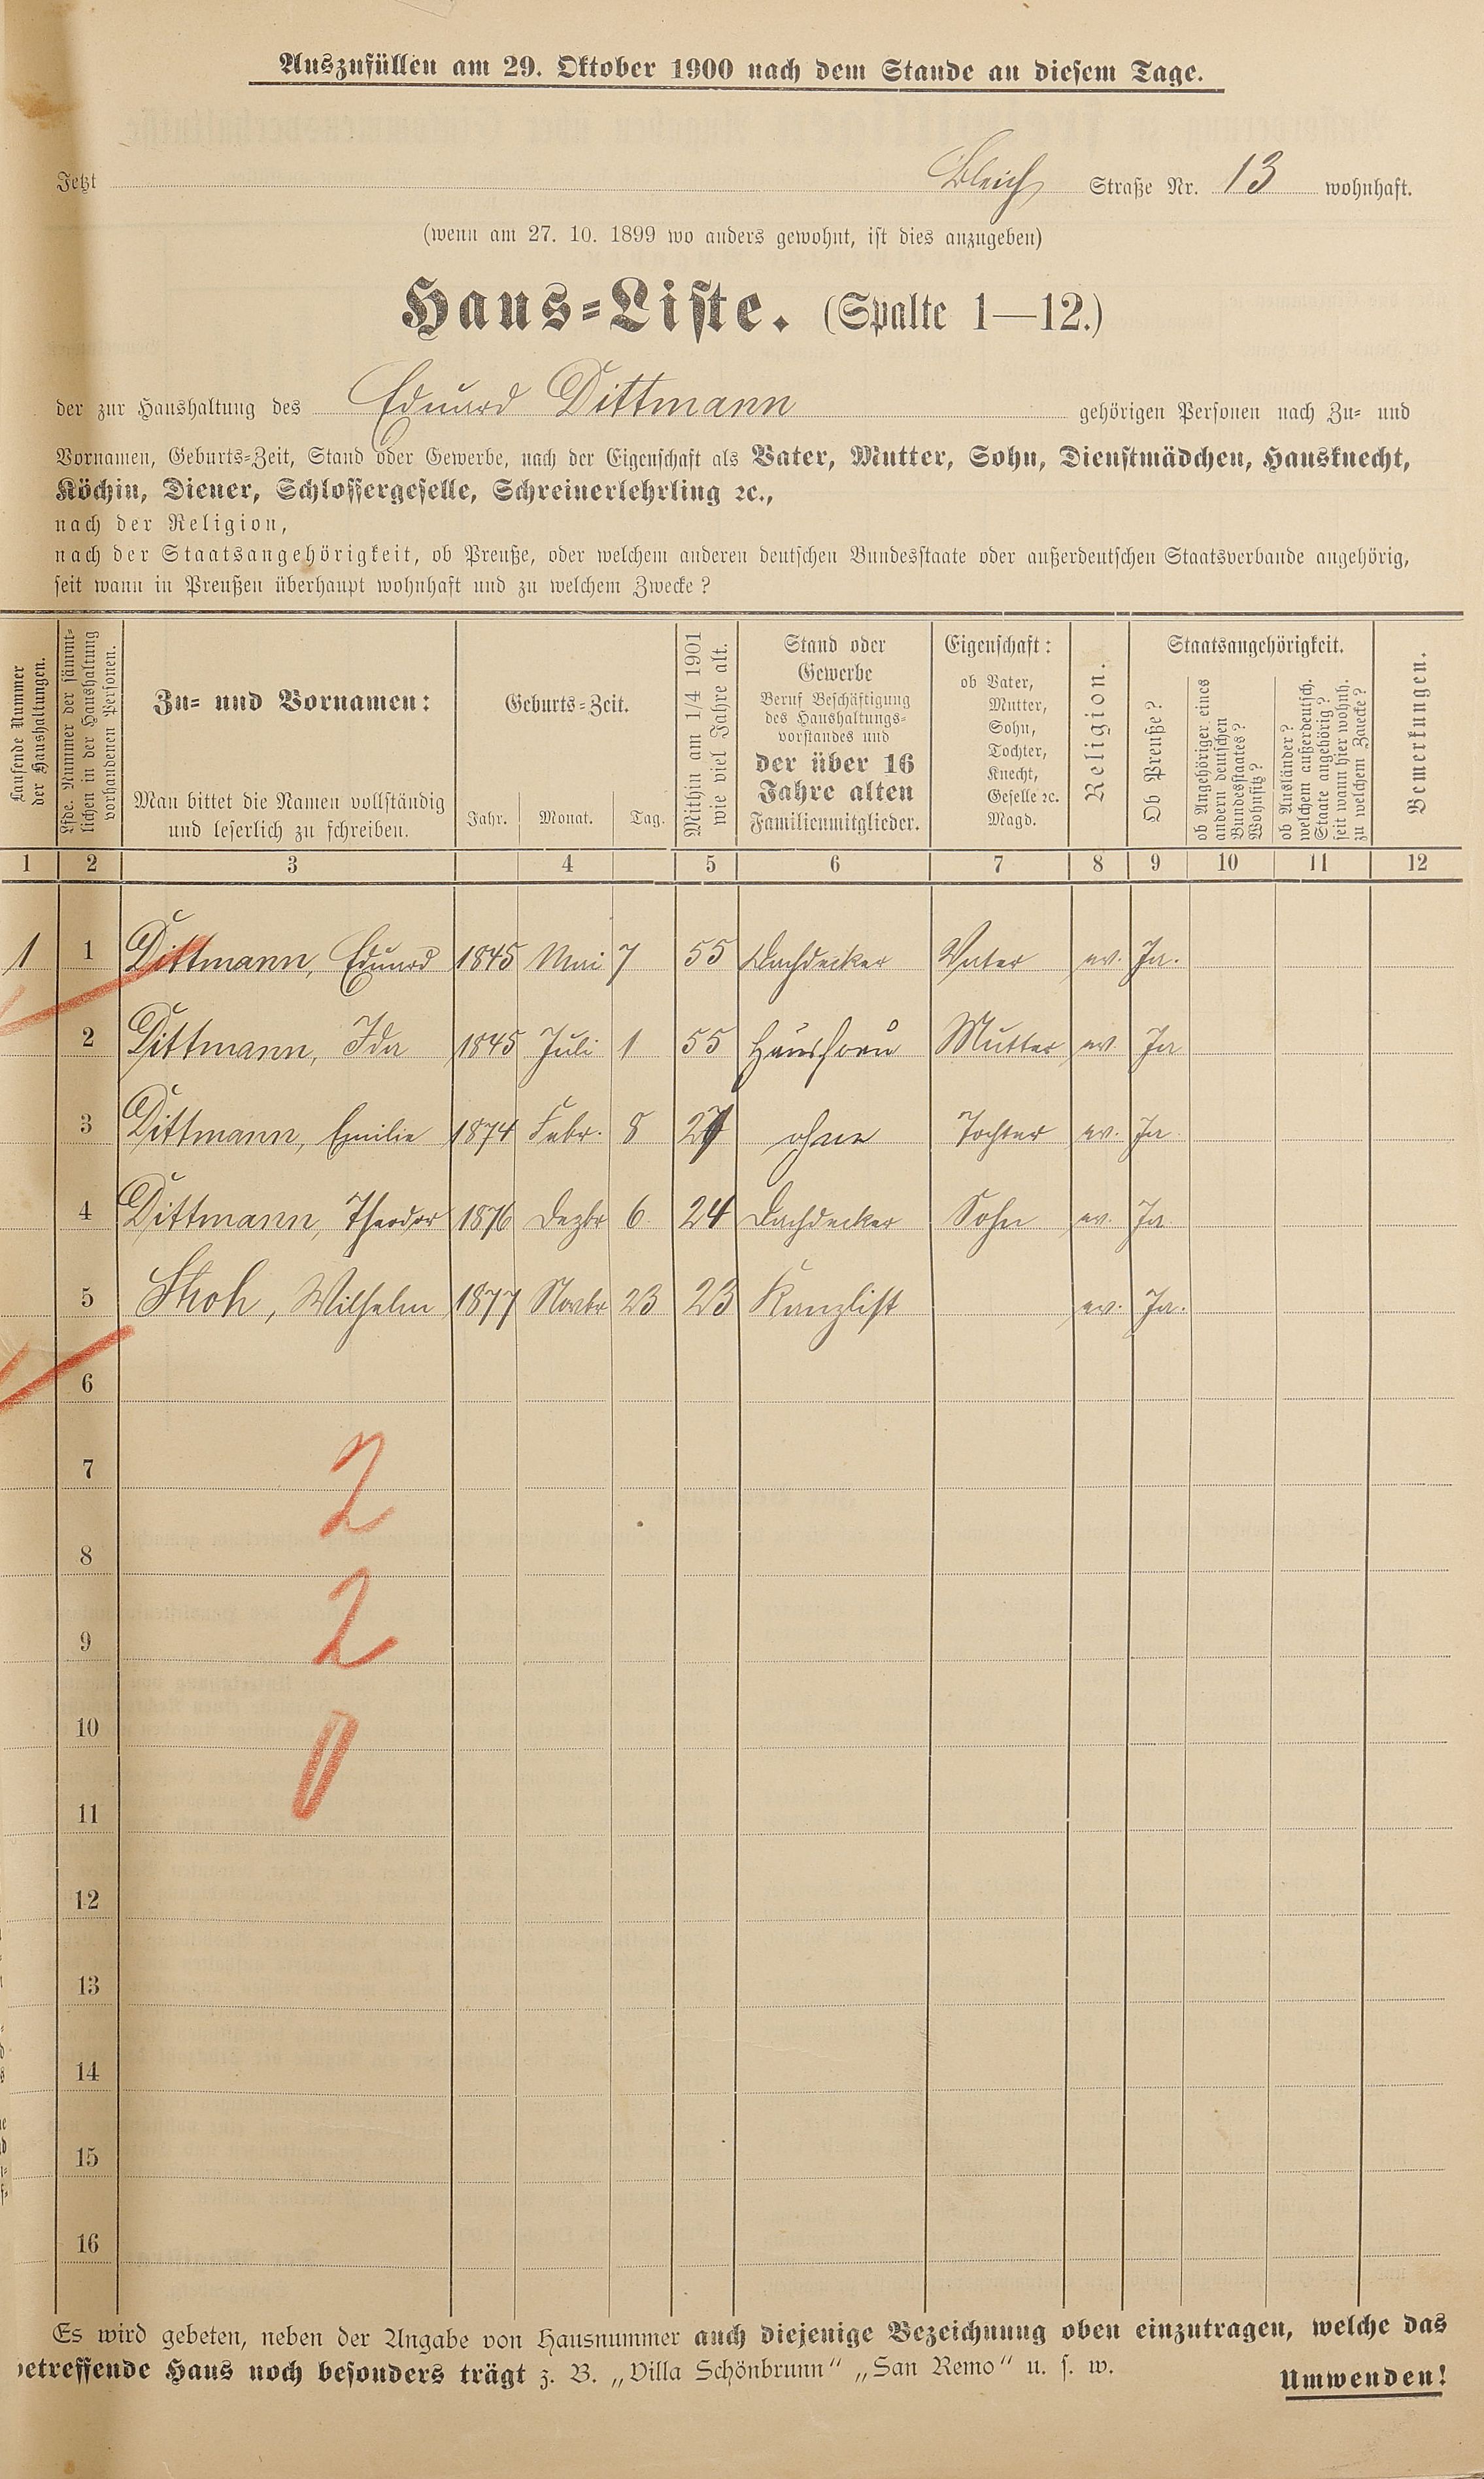 Auszufüllen am 29. Oktober 1900 nach dem Stande an diesem Tage.
Jetzt Bleich Straße Nr. 13 wohnhaft.
(wenn am 27. 10. 1899 wo anders gewohnt, ist dies anzugeben)
Haus=Liste. (Spalte 1—12.)
der zur Haushaltung des Eduard Dittmann gehörigen Personen nach Zu= und
Vornamen, Geburts=Zeit, Stand oder Gewerbe, nach der Eigenschaft als Vater, Mutter, Sohn, Dienstmädchen, Hausknecht,
Köchin, Diener, Schlossergeselle, Schreinerlehrling ꝛc.,
nach der Religion,
nach der Staatsangehörigkeit, ob Preuße, oder welchem anderen deutschen Bundesstaate oder außerdeutschen Staatsverbande angehörig,
seit wann in Preußen überhaupt wohnhaft und zu welchem Zwecke?
Laufende Nummer
der Haushaltungen.
Lfde. Nummer der sämmt=
lichen in der Haushaltung
vorhandenen Personen.
Zu= und Vornamen:
Man bittet die Namen vollständig
und leserlich zu schreiben.
Geburts=Zeit.
Jahr. Monat. Tag.
Mithin am 1/4 1901
wie viel Jahre alt.
Stand oder
Gewerbe
Beruf Beschäftigung
des Haushaltungs=
vorstandes und
der über 16
Jahre alten
Familienmitglieder.
Eigenschaft:
ob Vater,
Mutter,
Sohn,
Tochter,
Knecht,
Geselle ꝛc.
Magd.
Religion.
Staatsangehörigkeit.
Ob Preuße?
ob Angehöriger eines
andern deutschen
Bundesstaates?
Wohnsitz?
ob Ausländer?
welchem außerdeutsch.
Staate angehörig?
seit wann hier wohnh.
zu welchem Zwecke?
Bemerkungen.
1 2 3 4 5 6 7 8 9 10 11 12
1 1 Dittmann, Eduard 1845 Mai 7 55 Dachdecker Vater ev. Ja.
2 Dittmann, Ida 1845 Juli 1 55 Hausfrau Mutter ev. Ja
3 Dittmann, Emilie 1874 Febr. 8 27 ohne Tochter ev. Ja
4 Dittmann, Theodor 1876 Dezbr 6 24 Dachdecker Sohn ev. Ja
5 Wilhelm 1877 Novbr 23 23 Kanzlist ev. Ja.
6
7
2
8
9
2
10
0
11
12
13
14
15
16
Es wird gebeten, neben der Angabe von Hausnummer auch diejenige Bezeichnung oben einzutragen, welche das
betreffende Haus noch besonders trägt z. B. „Villa Schönbrunn“ „San Remo“ u. s. w.
Umwenden!